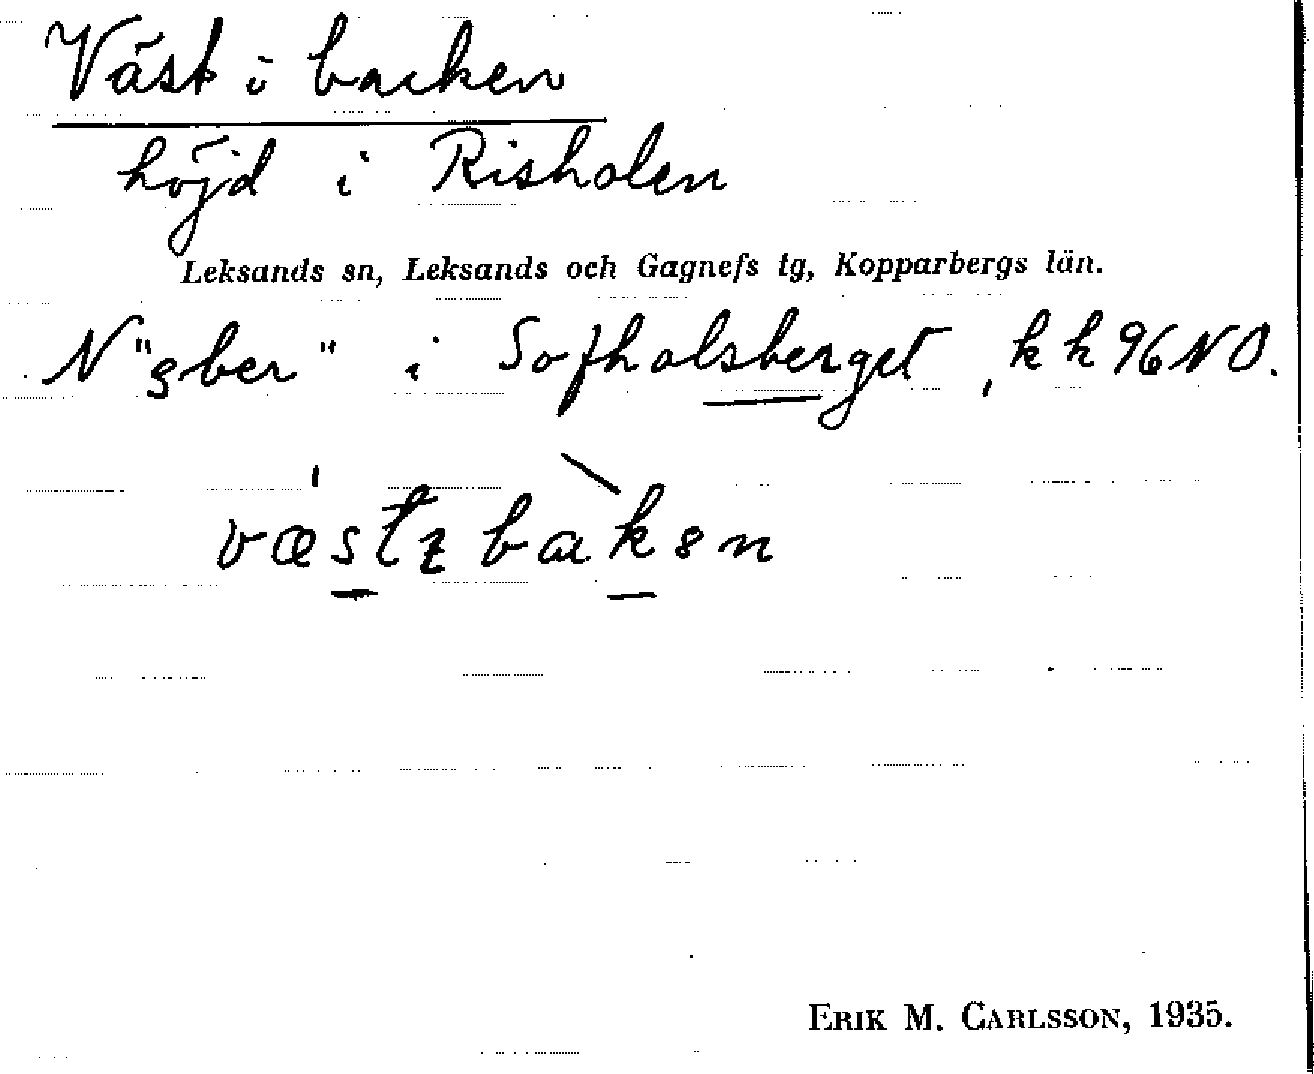 Väst i backen
höjd i Risholen
Leksands sn, Leksands och Gagnefs tg, Kopparbergs län.
N "sber" i Sofholsberget, k k 96 NO.
væstz bakən
ERIK M. CARLSSON, 1935.